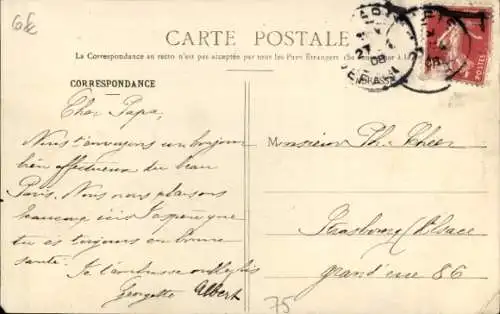 6€
CARTE POSTALE
La Correspondance au recto n'est pas acceptée par tous les Pays Étrangers (Se
CORRESPONDANCE
Cher Papa,
Nous t'envoyons un bonjour
bien affectueux du beau
Paris. Nous nous plaisons
beaucoup ici j'espère que
tu es toujours en bonne
santé.
Je t'embrasse
Georgette Albert
Monsieur Ph. Scheer
Strasbourg (Alsace
grand'rue 86
08
POSTES
75